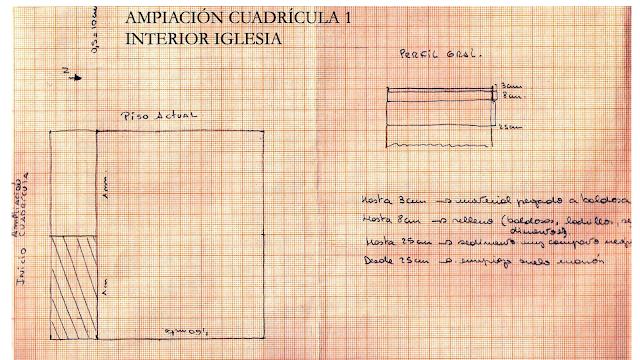 AMPIACIÓN CUADRÍCULA 1
INTERIOR IGLESIA
0,5 = 10cm
PERFIL GRAL.
N
3cm
8cm.
25cm
Piso Actual
1m
1m
Ampliación
Inicio Cuadrícula
Hasta 3cm → material pegado a baldosa
Hasta 8cm → relleno (baldosas, ladrillos, se
dimentos)
Hasta 25cm → sedimento muy compacto
Desde 25cm → empieza suelo marrón